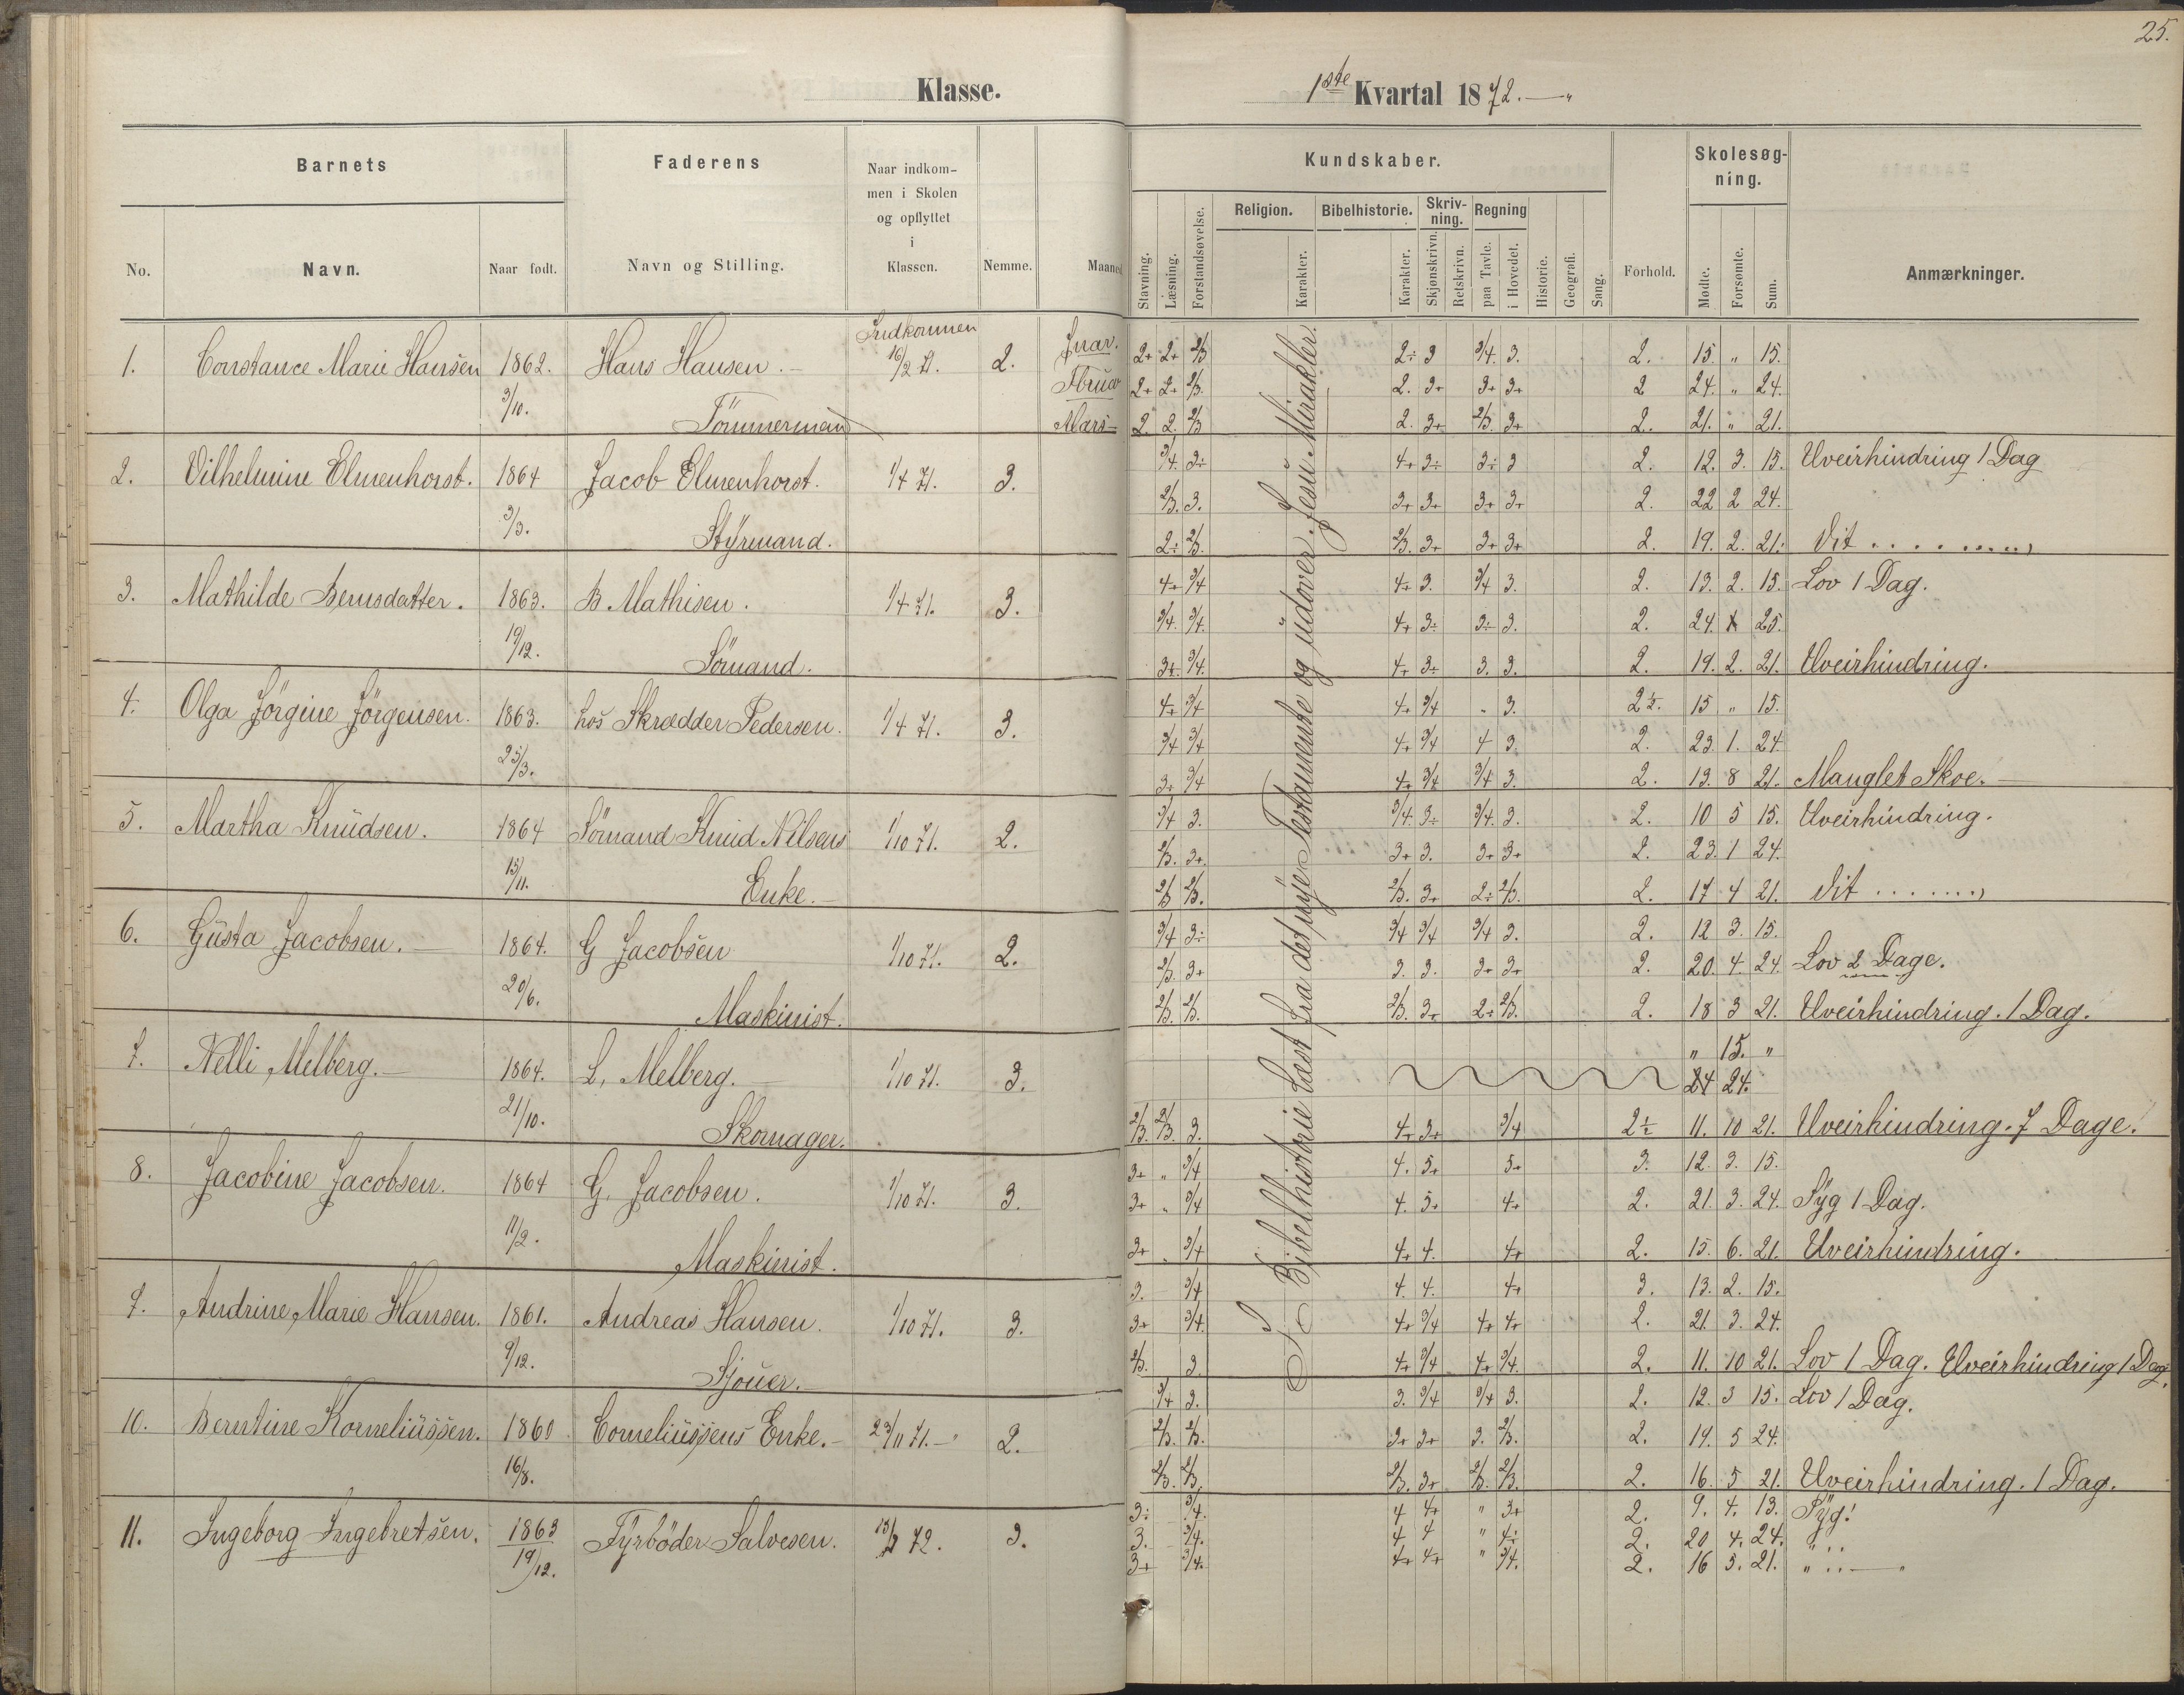 25.
Klasse.
1ste Kvartal 1872.
Barnets
Faderens
Naar indkommen i Skolen og opflyttet i Klassen.
Nemme.
Maaned
Kundskaber.
Skolesøgning.
No.
Navn.
Naar født.
Navn og Stilling.
Stavning.
Læsning.
Forstandsøvelse.
Religion.
Karakter.
Bibelhistorie.
Karakter.
Skrivning.
Skjønskrivn.
Retskrivn.
Regning
paa Tavle.
i Hovedet.
Historie.
Geografi.
Sang.
Forhold.
Mødte.
Forsømte.
Sum.
Anmærkninger.
I Bibelhistorie læst fra det nye Testamente og udover Jesu Mirakler.
1. Constance Marie Hansen 1862. 3/10. Hans Hansen. Tömmermand Indkommen 16/2 71. 2.
Jnar. 2+ 2+ 2/3 2÷ 3 3/4. 3. 2. 15. „ 15.
Fbruar 2+ 2+ 2/3. 2. 3+ 3+ 3+ 2 24. „ 24.
Mars 2 2. 2/3 2. 3+ 2/3. 3+ 2. 21. „ 21.
2. Vilhelmine Elmenhorst. 1864 3/3. Jacob Elmenhorst. Styrmand. 1/4 71. 3.
3/4. 3÷ 4+ 3÷ 3÷ 3 2. 12. 3. 15. Uveirhindring 1 Dag
2/3. 3. 3+ 3+ 3+ 3+ 2. 22 2 24.
2÷ 2/3. 2/3. 3+ 3+ 3+ 2. 19. 2. 21. dit .........
3. Mathilde Bernsdatter. 1863. 19/12. B. Mathisen. Sömand. 1/4 71. 3.
4+ 3/4 4+ 3. 3/4 3. 2. 13. 2. 15. Lov 1 Dag.
3/4. 3/4. 4+ 3÷ 3÷ 3. 2. 24. 1 25.
3+ 3/4. 4+ 3÷ 3. 3. 2. 19. 2. 21. Uveirhindring.
4. Olga Jörgine Jörgensen. 1863. 25/3. hos Skrædder Pedersen. 1/4 71. 3.
4+ 3/4 4+ 3/4 „ 3. 2½. 15 „ 15.
3/4 3/4 4+ 3/4 4 3. 2. 23. 1. 24
3+ 3/4 4+ 3/4 3/4 3. 2. 13. 8 21. Manglet Skoe.
5. Martha Knudsen. 1864 15/11. Sömand Knud Nilsens Enke. 1/10 71. 2.
3/4 3. 3/4. 3÷ 3/4. 3. 2. 10 5 15. Uveirhindring.
2/3. 3+. 3+ 3. 3+ 3+ 2. 23. 1 24.
2/3 2/3. 2/3. 3+ 2÷ 2/3. 2. 17 4 21. dit ........
6. Gusta Jacobsen. 1864. 20/6. G Jacobsen Maskinist. 1/10 71. 2.
3/4 3÷ 3/4 3/4 3/4 3. 2. 12 3. 15.
2/3. 3+ 3. 3. 3+ 3+ 2. 20. 4. 24. Lov 2 Dage.
2/3. 2/3. 2/3. 3+ 2÷ 2/3. 2. 18 3 21. Uveirhindring. 1 Dag.
7. Nelli Melberg. 1864. 21/10. L. Melberg. Skomager. 1/10 71. 3.
„ 15. „
24 24.
2/3. 2/3. 3. 4+ 3+ 3/4 2½ 11. 10 21. Uveirhindring. 7 Dage.
8. Jacobine Jacobsen. 1864 11/2. G. Jacobsen. Maskinist. 1/10 71. 3.
3+ „ 3/4 4. 5+ 5+ 3. 12. 3. 15.
3+ „ 3/4 4. 5+ 4+ 2. 21. 3. 24. Syg 1 Dag.
3+ „ 3/4 4+ 4. 4+ 2. 15. 6. 21. Uveirhindring.
9. Andrine Marie Hansen. 1861. 9/12. Andreas Hansen. Sjouer. 1/10 71. 3.
3. 3/4 4. 4. 4+ 3. 13. 2. 15.
3+ 3/4. 4+ 3/4 4+ 4+ 2. 21. 3. 24.
2/3. 3. 4+ 3/4 4+ 3/4. 2. 11. 10 21. Lov 1 Dag. Uveirhindring 1 Dag.
10. Berntine Korneliussen. 1860 16/8. Corneliussens Enke. 23/11 71. 2.
3/4 3. 3. 3/4 3/4 3. 2. 12. 3 15. Lov 1 Dag.
2/3. 2/3. 3+ 3+ 3. 2/3. 2. 19. 5 24.
2/3. 2/3. 2/3. 3+ 2/3. 2/3. 2. 16. 5 21. Uveirhindring. 1 Dag.
11. Ingeborg Ingebretsen. 1863 19/12. Fyrböder Salvesen. 72. 3.
3÷ 3/4. 4 4+ „ 3+ 2. 9. 4. 13. Syg!
3. 3/4. 4 4 „ 4÷ 2. 20 4. 24. „ ..
3+ 3/4. 4+ 4+ „ 3/4. 2. 16 5. 21. „ .. „